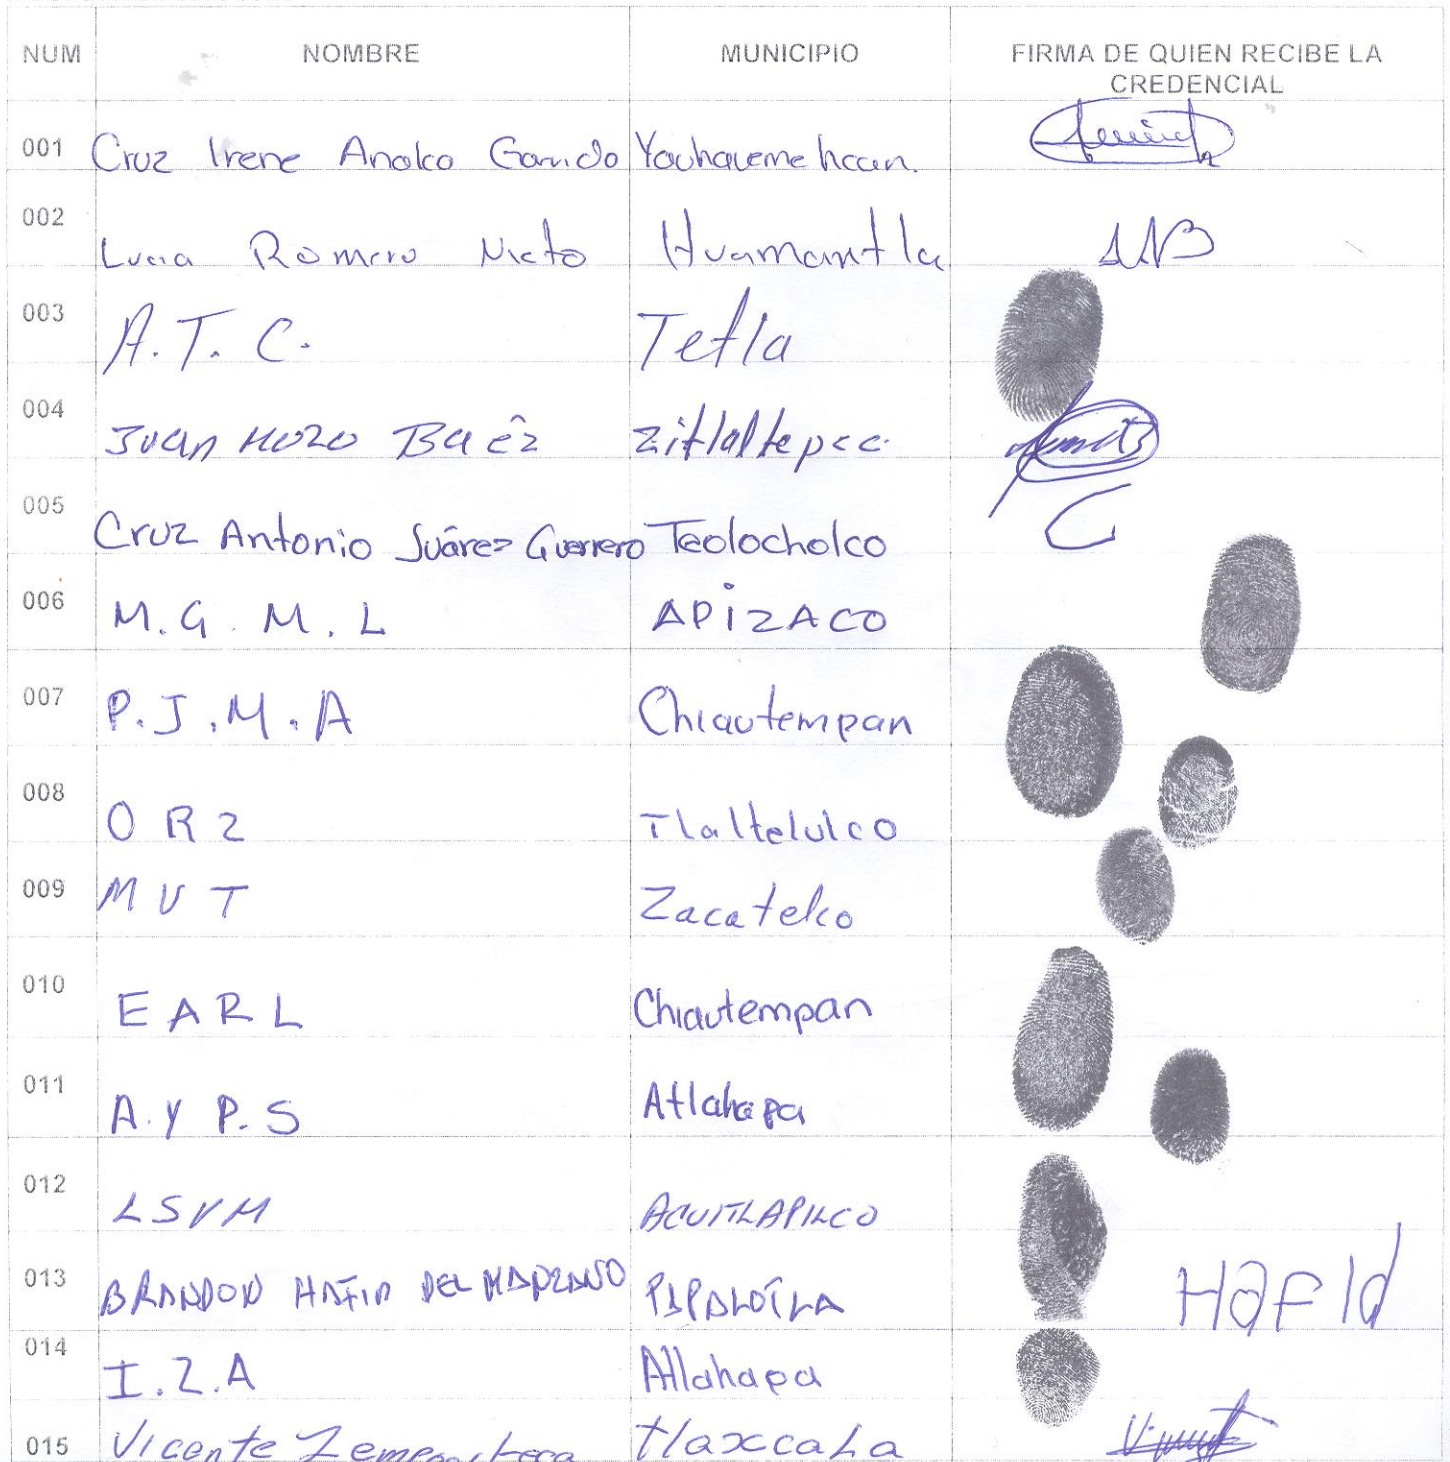 NUM NOMBRE MUNICIPIO FIRMA DE QUIEN RECIBE LA
CREDENCIAL
001 Cruz Irene Garrido
002 Lucia Romero Nieto Huamantla
003 A.T.C. Tetla
004 Juan Báez Zitlaltepec
005 Cruz Antonio Suárez Guerrero Teolocholco
006 M.G.M.L APiZACO
007 P.J.M.A Chiautempan
008 O R Z Tlaltelulco
009 M V T Zacatelco
010 E A R L Chiautempan
011 A.Y P.S Atlahapa
012 LSVM ACUITLAPILCO
013 BRANDON HAFID DEL MANZANO PAPALOTLA HaFId
014 I.Z.A Atlahapa
015 Vicente Tlaxcala